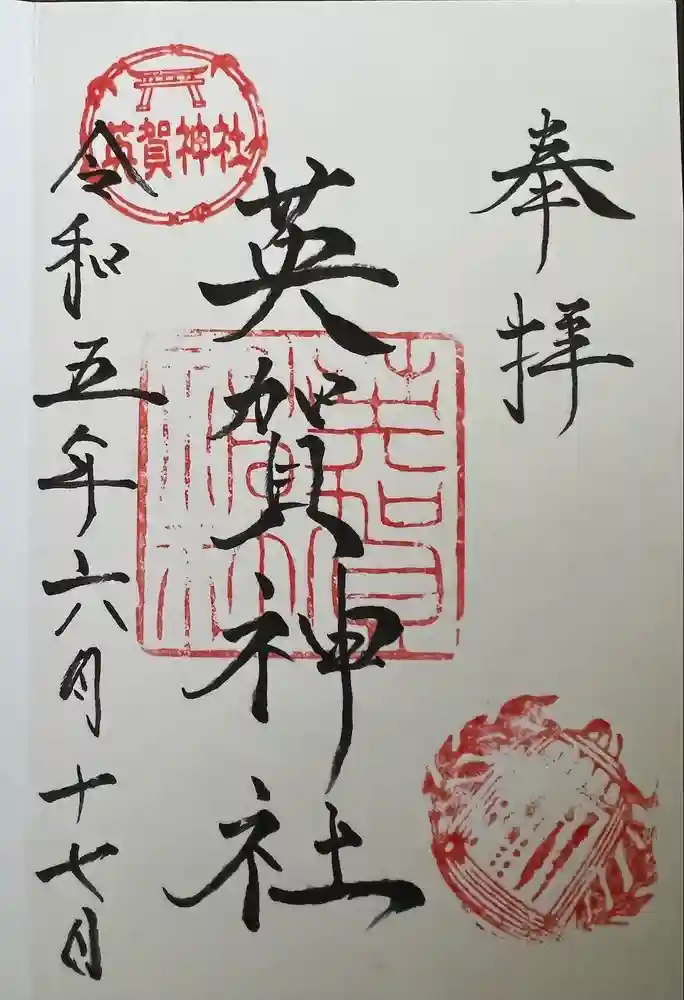 奉拝
英賀神社
英賀神社
令和五年六月十七日